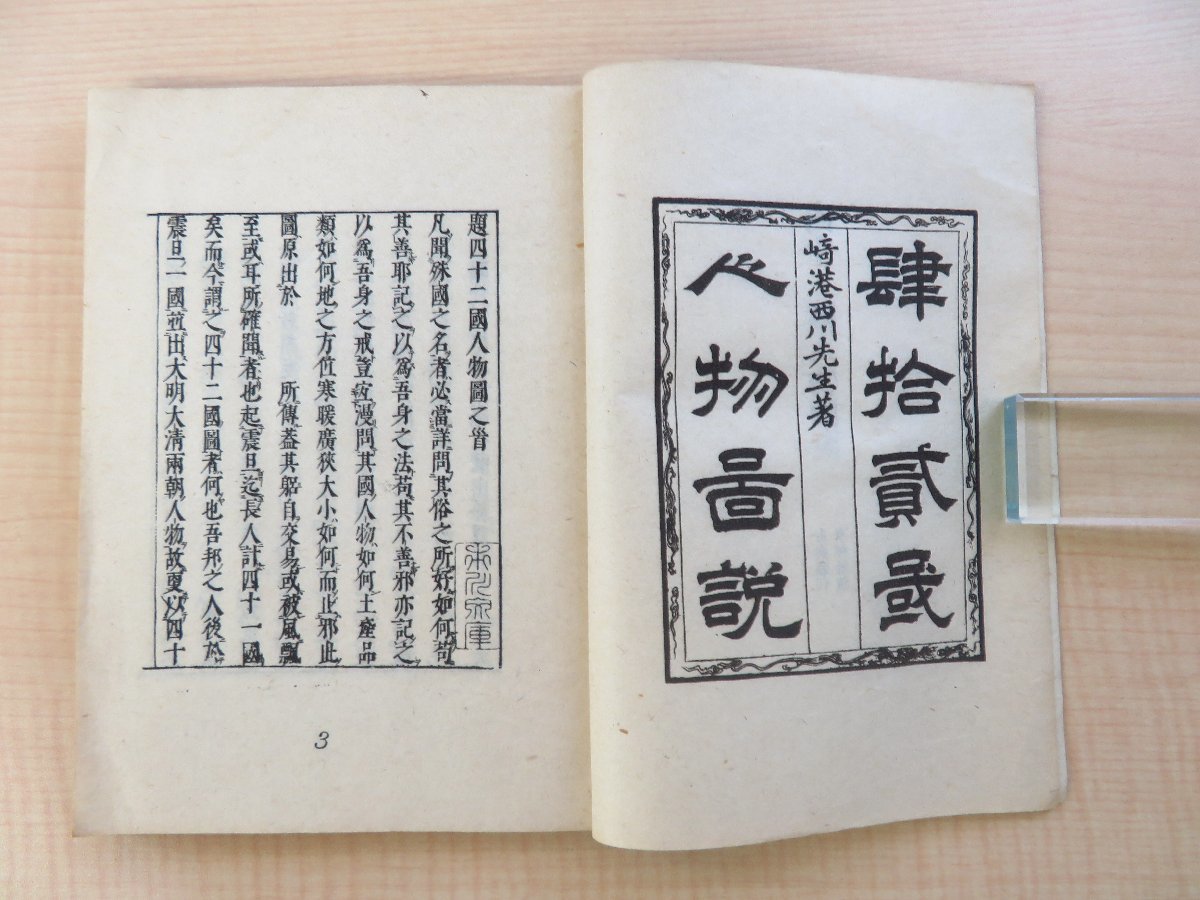 肆拾貳國
崎港西川先生著
人物圖説
題四十二國人物圖之首
凡聞殊國之名者必當詳問其俗之所好如何苟
其善耶記之以為吾身之法苟其不善邪亦記之
以為吾身之戒豈漫問其國人物如何土產品
類如何地之方位寒暖廣狹大小如何而止邪此
圖原出於 所傳蓋其躬自交易或被風飄
至或耳所確聞者也起震旦迄長人計四十一國
矣而今謂之四十二國圖者何也吾邦之人後於
震旦一國並出大明大清兩朝人物故更以四十
3